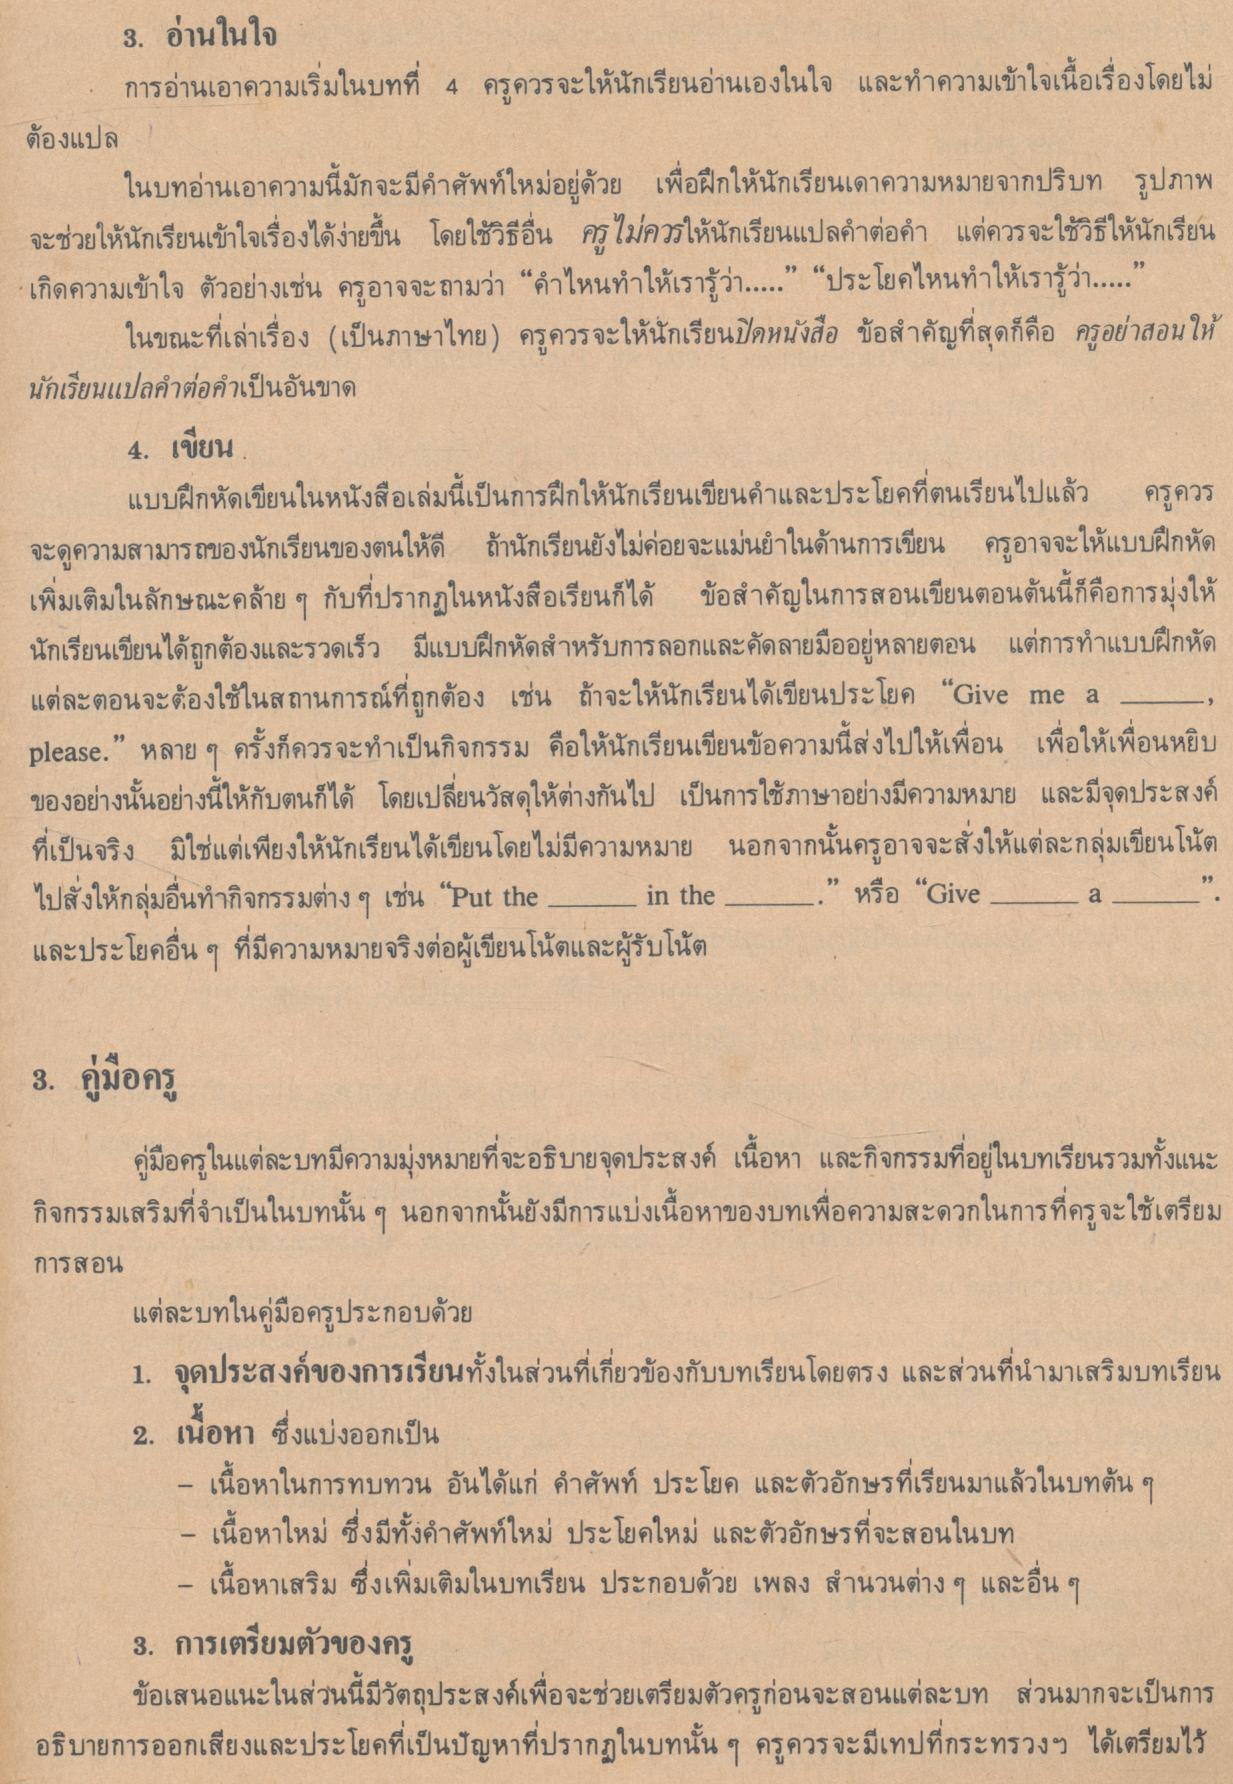 3. อ่านในใจ
การอ่านเอาความเริ่มในบทที่ 4 ครูควรจะให้นักเรียนอ่านเองในใจ และทำความเข้าใจเนื้อเรื่องโดยไม่
ต้องแปล
ในบทอ่านเอาความนี้มักจะมีคำศัพท์ใหม่อยู่ด้วย เพื่อฝึกให้นักเรียนเดาความหมายจากปริบท รูปภาพ
จะช่วยให้นักเรียนเข้าใจเรื่องได้ง่ายขึ้น โดยใช้วิธีอื่น ครูไม่ควรให้นักเรียนแปลคำต่อคำ แต่ควรจะใช้วิธีให้นักเรียน
เกิดความเข้าใจ ตัวอย่างเช่น ครูอาจจะถามว่า “คำไหนทำให้เรารู้ว่า.....” “ประโยคไหนทำให้เรารู้ว่า.....”
ในขณะที่เล่าเรื่อง (เป็นภาษาไทย) ครูควรจะให้นักเรียนปิดหนังสือ ข้อสำคัญที่สุดก็คือ ครูอย่าสอนให้
นักเรียนแปลคำต่อคำเป็นอันขาด
4. เขียน
แบบฝึกหัดเขียนในหนังสือเล่มนี้เป็นการฝึกให้นักเรียนเขียนคำและประโยคที่ตนเรียนไปแล้ว ครูควร
จะดูความสามารถของนักเรียนของตนให้ดี ถ้านักเรียนยังไม่ค่อยจะแม่นยำในด้านการเขียน ครูอาจจะให้แบบฝึกหัด
เพิ่มเติมในลักษณะคล้าย ๆ กับที่ปรากฏในหนังสือเรียนก็ได้ ข้อสำคัญในการสอนเขียนตอนต้นนี้ก็คือการมุ่งให้
นักเรียนเขียนได้ถูกต้องและรวดเร็ว มีแบบฝึกหัดสำหรับการลอกและคัดลายมืออยู่หลายตอน แต่การทำแบบฝึกหัด
แต่ละตอนจะต้องใช้ในสถานการณ์ที่ถูกต้อง เช่น ถ้าจะให้นักเรียนได้เขียนประโยค “Give me a ______,
please.” หลาย ๆ ครั้งก็ควรจะทำเป็นกิจกรรม คือให้นักเรียนเขียนข้อความนี้ส่งไปให้เพื่อน เพื่อให้เพื่อนหยิบ
ของอย่างนั้นอย่างนี้ให้กับตนก็ได้ โดยเปลี่ยนวัสดุให้ต่างกันไป เป็นการใช้ภาษาอย่างมีความหมาย และมีจุดประสงค์
ที่เป็นจริง มิใช่แต่เพียงให้นักเรียนได้เขียนโดยไม่มีความหมาย นอกจากนั้นครูอาจจะสั่งให้แต่ละกลุ่มเขียนโน้ต
ไปสั่งให้กลุ่มอื่นทำกิจกรรมต่าง ๆ เช่น “Put the ______ in the ______.” หรือ “Give ______ a ______”.
และประโยคอื่น ๆ ที่มีความหมายจริงต่อผู้เขียนโน้ตและผู้รับโน้ต
3. คู่มือครู
คู่มือครูในแต่ละบทมีความมุ่งหมายที่จะอธิบายจุดประสงค์ เนื้อหา และกิจกรรมที่อยู่ในบทเรียนรวมทั้งแนะ
กิจกรรมเสริมที่จำเป็นในบทนั้น ๆ นอกจากนั้นยังมีการแบ่งเนื้อหาของบทเพื่อความสะดวกในการที่ครูจะใช้เตรียม
การสอน
แต่ละบทในคู่มือครูประกอบด้วย
1. จุดประสงค์ของการเรียนทั้งในส่วนที่เกี่ยวข้องกับบทเรียนโดยตรง และส่วนที่นำมาเสริมบทเรียน
2. เนื้อหา ซึ่งแบ่งออกเป็น
– เนื้อหาในการทบทวน อันได้แก่ คำศัพท์ ประโยค และตัวอักษรที่เรียนมาแล้วในบทต้น ๆ
– เนื้อหาใหม่ ซึ่งมีทั้งคำศัพท์ใหม่ ประโยคใหม่ และตัวอักษรที่จะสอนในบท
– เนื้อหาเสริม ซึ่งเพิ่มเติมในบทเรียน ประกอบด้วย เพลง สำนวนต่าง ๆ และอื่น ๆ
3. การเตรียมตัวของครู
ข้อเสนอแนะในส่วนนี้มีวัตถุประสงค์เพื่อจะช่วยเตรียมตัวครูก่อนจะสอนแต่ละบท ส่วนมากจะเป็นการ
อธิบายการออกเสียงและประโยคที่เป็นปัญหาที่ปรากฏในบทนั้น ๆ ครูควรจะมีเทปที่กระทรวงฯ ได้เตรียมไว้